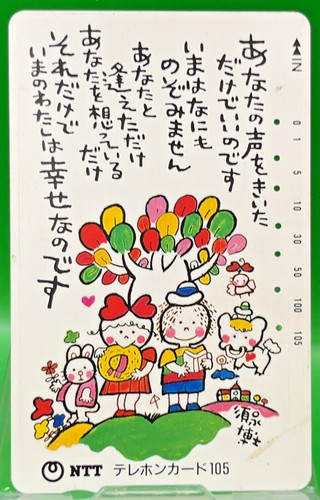 あなたの声をきいた
だけでいいのです
いまはなにも
のぞみません
あなたと
逢えただけ
あなたを想っている
だけ
それだけで
いまのわたしは幸せなのです
IN
0
1
5
10
30
50
100
105
須永博士
NTT テレホンカード105